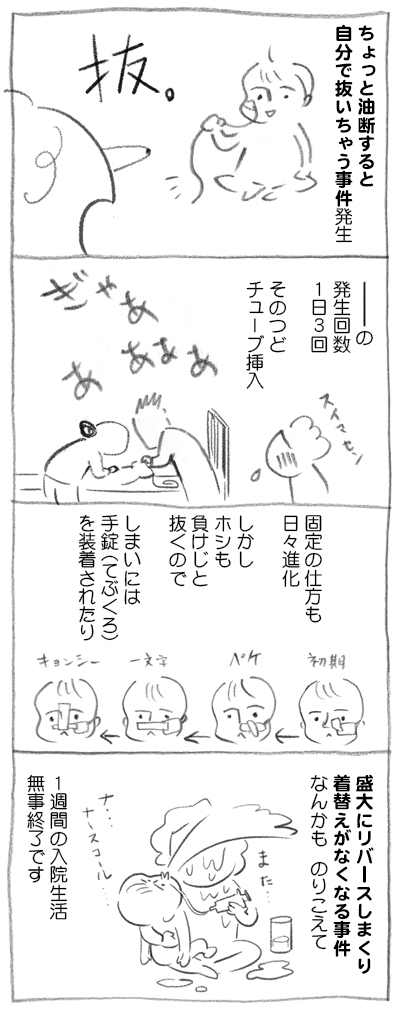 ちょっと油断すると
自分で抜いちゃう事件発生
抜。
――の
発生回数
1日3回
そのつど
チューブ挿入
ぎゃあ
あぁぁぁ
あ
スイマセン
固定の仕方も
日々進化
しかし
ホシも
負けじと
抜くので
しまいには
手錠（てぶくろ）
を装着されたり
初期
ペケ
一文字
キョンシー
盛大にリバースしまくり
着替えがなくなる事件
なんかも のりこえて
また…
ナ…
ナースコール…
1週間の入院生活
無事終了です